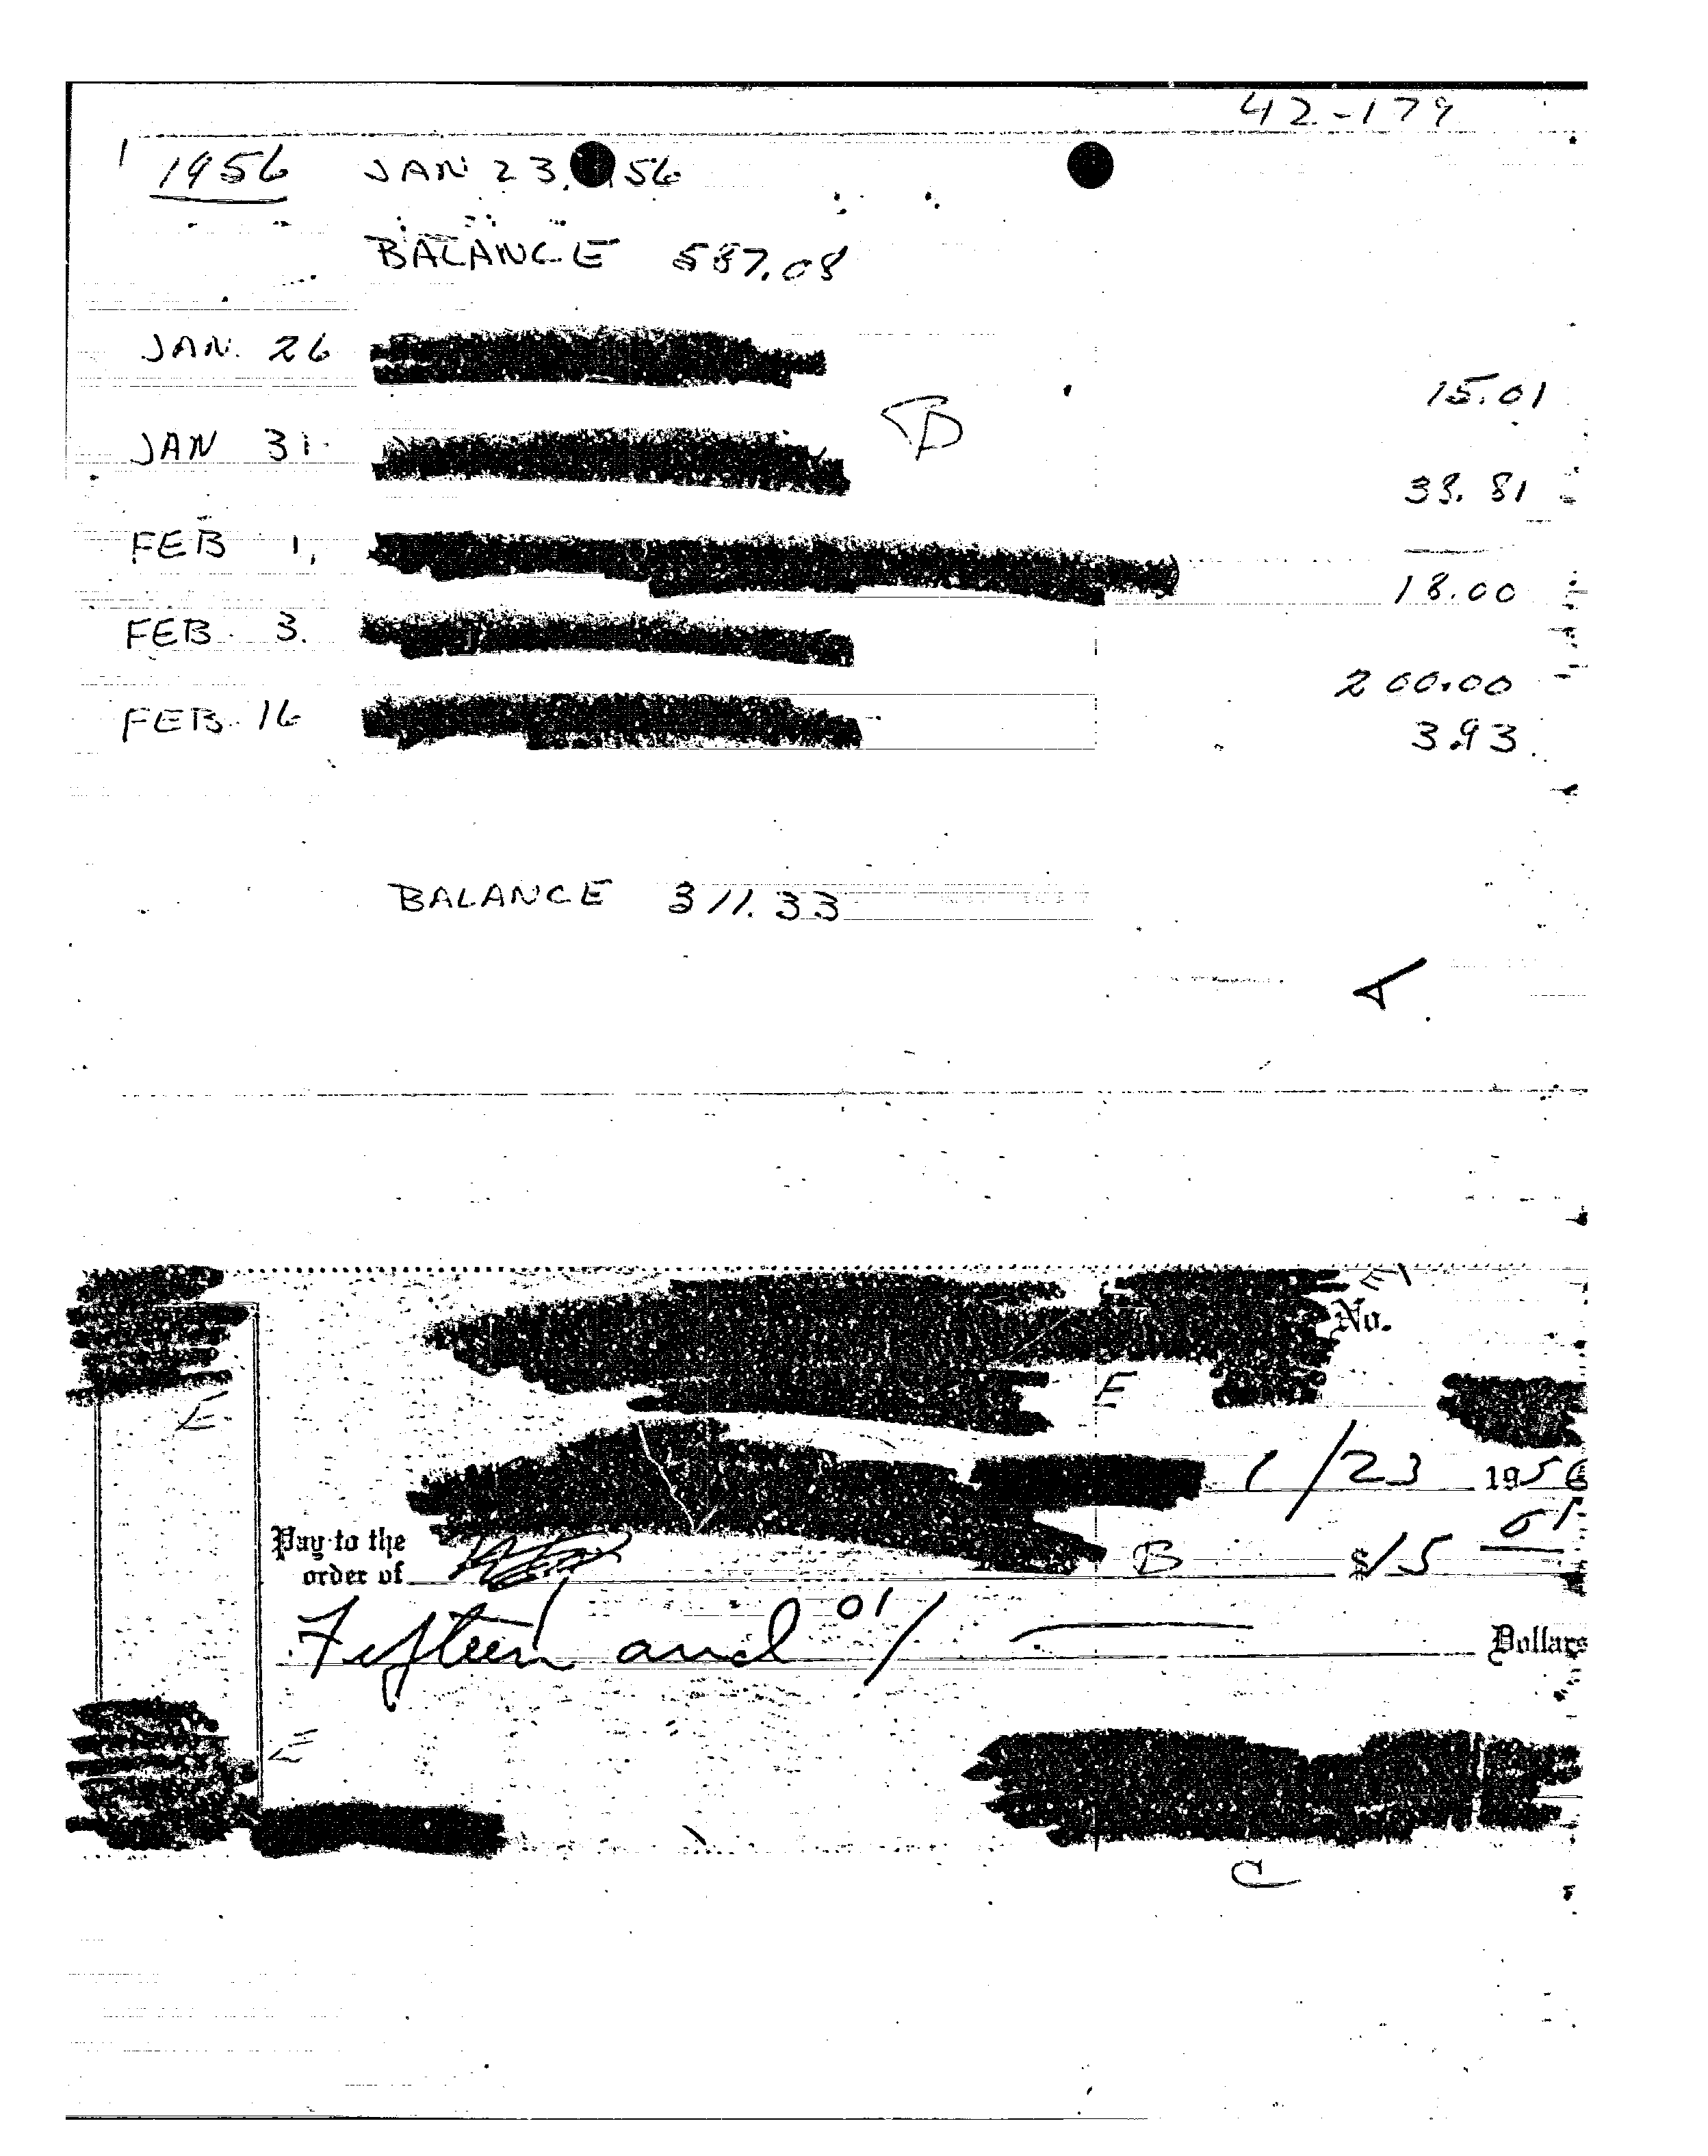 42-179
1956 JAN 23, 1956
BALANCE 587.08
JAN. 26
15.01
JAN 31.
B
38.81
FEB 1,
18.00
FEB 3.
200.00
FEB 16
3.93
BALANCE 311.33
E
No.
E
E
1/23 1956
Pay to the
order of
B
$15 01
Fifteen and 01/
Dollars
E
C